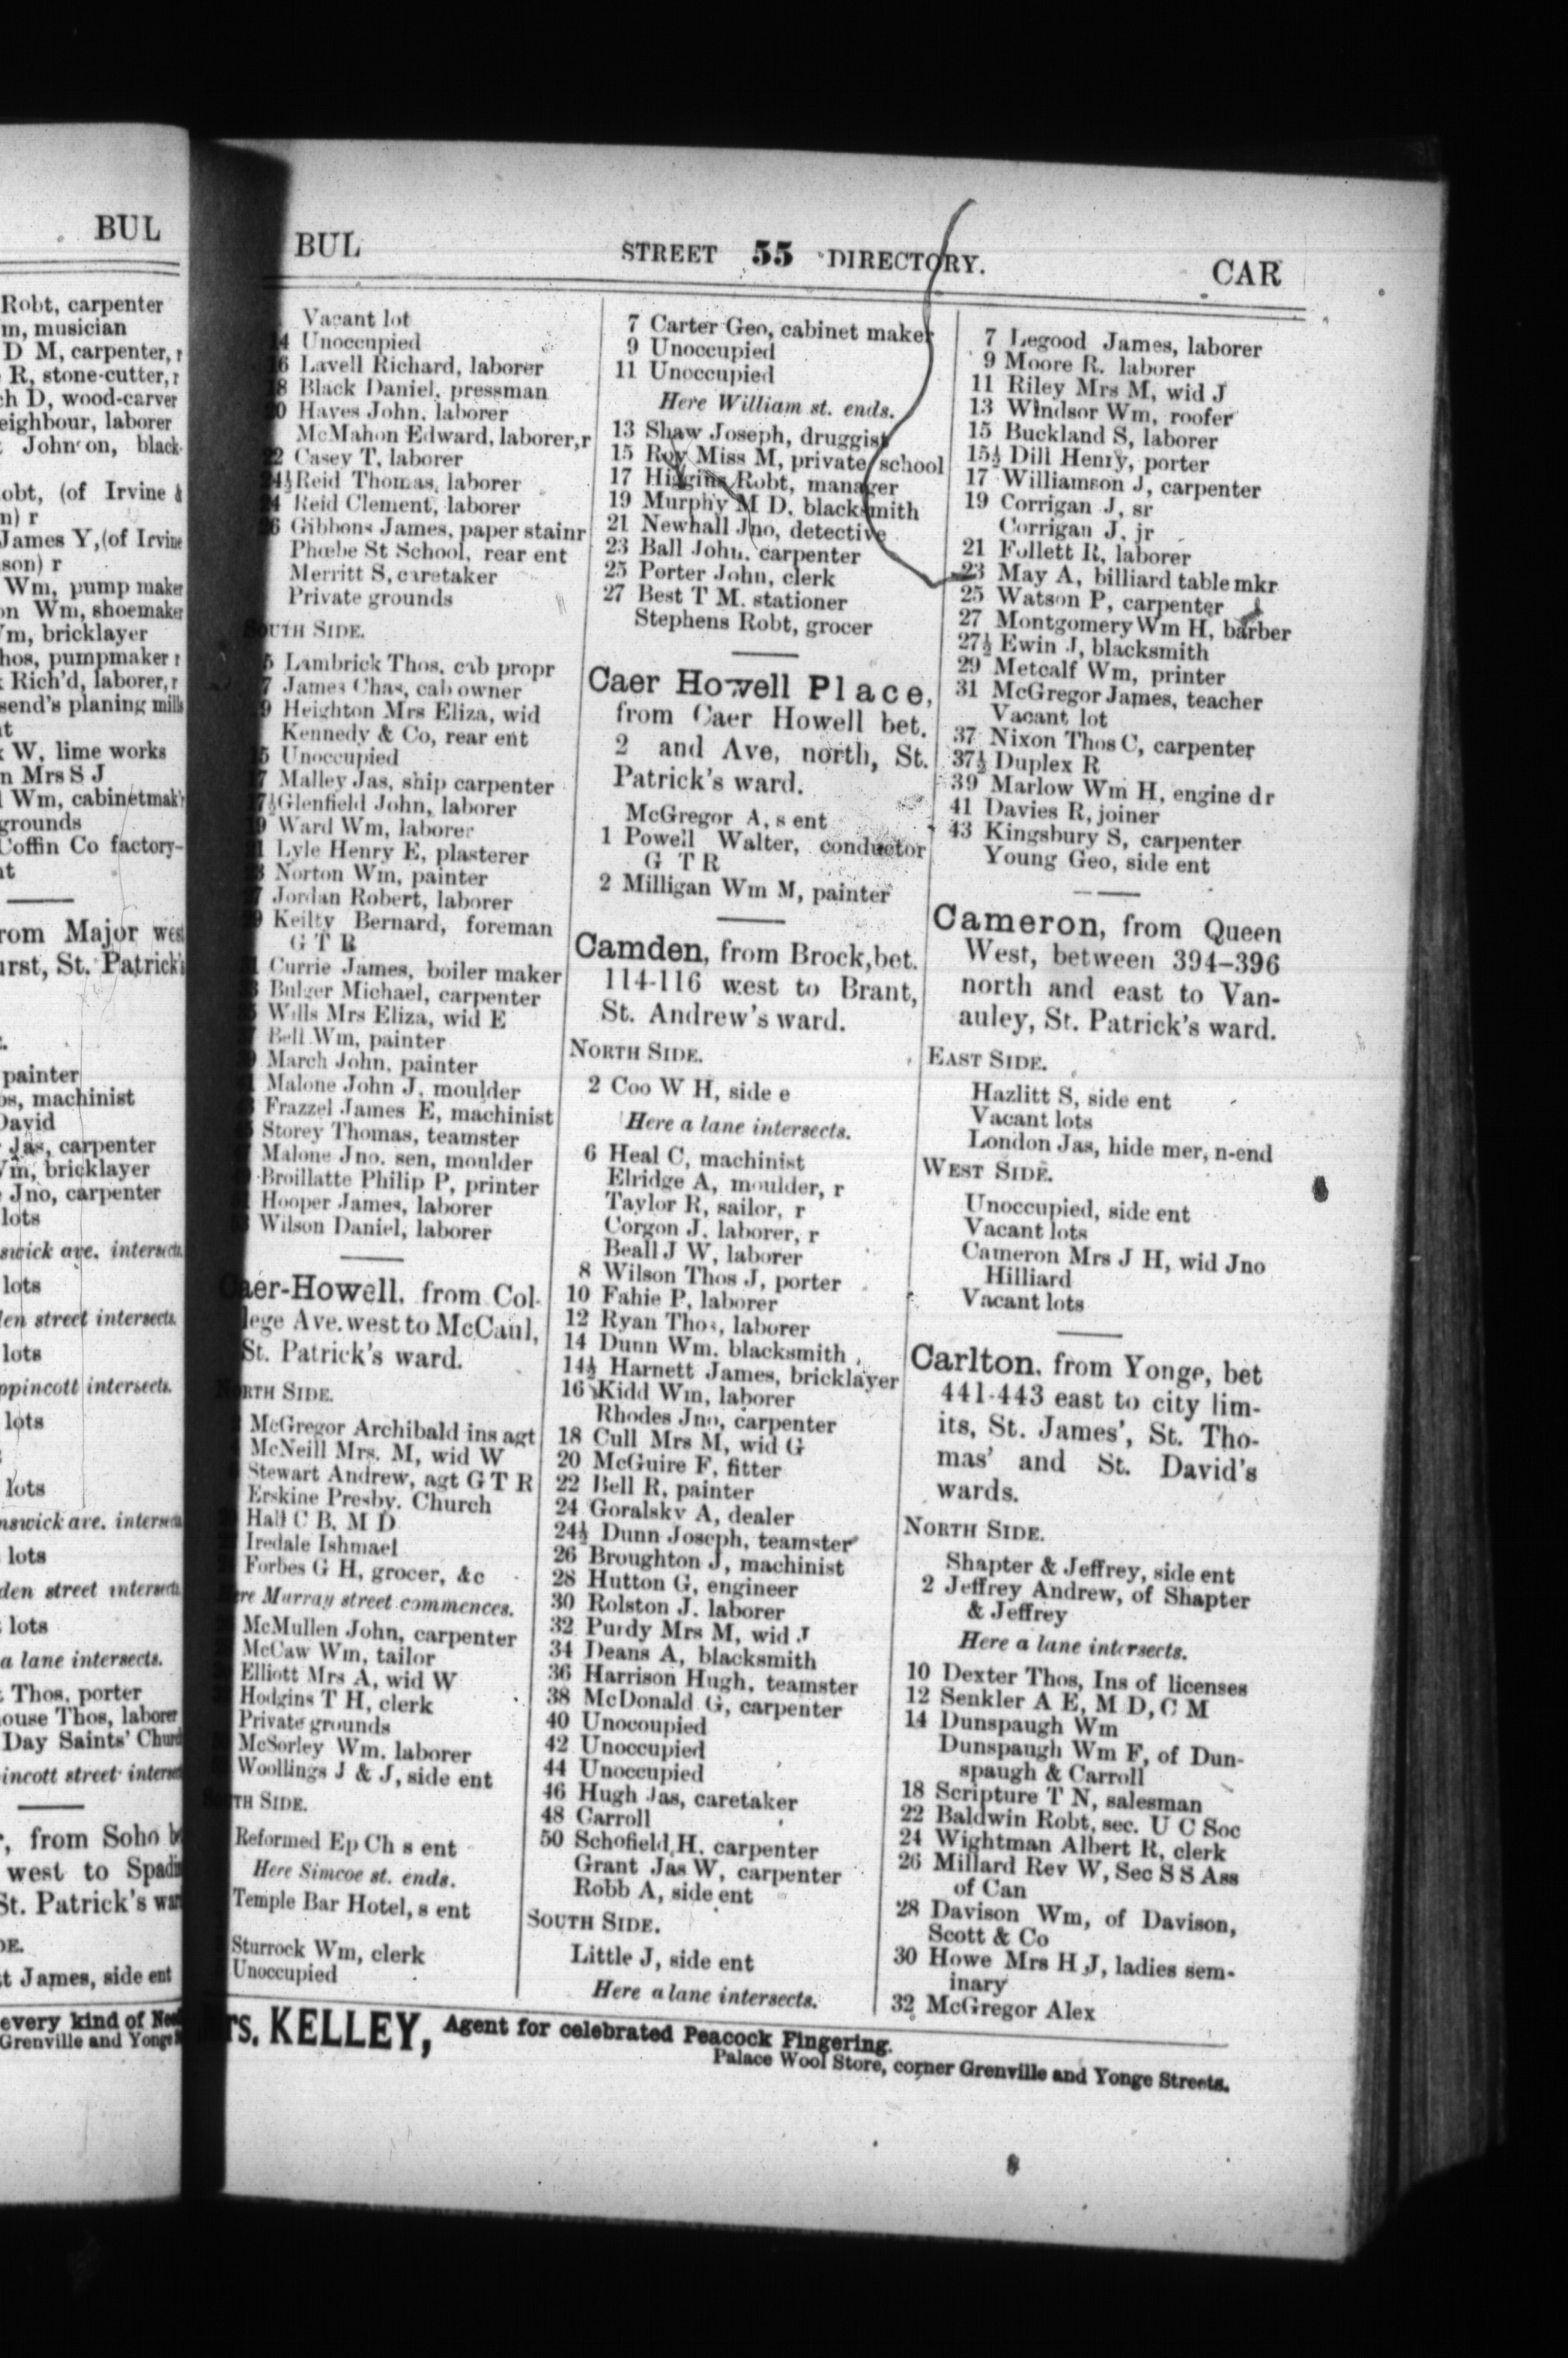 BUL
Robt, carpenter
m, musician
D M, carpenter, r
R, stone-cutter, r
ch D, wood-carver
eighbour, laborer
John on, black-
obt, (of Irvine &
n) r
James Y, (of Irvine
son) r
Wm, pump maker
on Wm, shoemaker
m, bricklayer
hos, pumpmaker r
Rich'd, laborer, r
send's planing mills
nt
W, lime works
n Mrs S J
Wm, cabinetmak'r
grounds
Coffin Co factory-
nt
rom Major west
urst, St. Patrick's
painter
os, machinist
David
Jas, carpenter
m, bricklayer
Jno, carpenter
lots
swick ave. intersects.
lots
den street intersects.
lots
ppincott intersects.
lots
lots
nswick ave. intersects
lots
den street intersects
lots
a lane intersects.
Thos, porter
ouse Thos, laborer
Day Saints' Church
incott street intersect
, from Soho
west to Spadi
St. Patrick's war
DE.
t James, side ent
every kind of
Grenville and Yonge
BUL
STREET 55 DIRECTORY.
CAR
Vacant lot
4 Unoccupied
6 Lavell Richard, laborer
8 Black Daniel, pressman
0 Hayes John, laborer
McMahon Edward, laborer, r
2 Casey T, laborer
24½ Reid Thomas, laborer
24 Reid Clement, laborer
6 Gibbons James, paper stainr
Phœbe St School, rear ent
Merritt S, caretaker
Private grounds
SOUTH SIDE.
5 Lambrick Thos, cab propr
7 James Chas, cab owner
9 Heighton Mrs Eliza, wid
Kennedy & Co, rear ent
5 Unoccupied
7 Malley Jas, ship carpenter
17½ Glenfield John, laborer
9 Ward Wm, laborer
1 Lyle Henry E, plasterer
3 Norton Wm, painter
7 Jordan Robert, laborer
9 Keilty Bernard, foreman
G T R
1 Currie James, boiler maker
3 Bulger Michael, carpenter
5 Wills Mrs Eliza, wid E
7 Bell Wm, painter
9 March John, painter
1 Malone John J, moulder
Frazzel James E, machinist
Storey Thomas, teamster
Malone Jno, sen, moulder
Broillatte Philip P, printer
Hooper James, laborer
Wilson Daniel, laborer
Caer-Howell, from Col-
lege Ave. west to McCaul,
St. Patrick's ward.
NORTH SIDE.
McGregor Archibald ins agt
McNeill Mrs. M, wid W
Stewart Andrew, agt G T R
Erskine Presby. Church
Hall C B, M D
Iredale Ishmael
Forbes G H, grocer, &c
Here Murray street commences.
McMullen John, carpenter
McCaw Wm, tailor
Elliott Mrs A, wid W
Hodgins T H, clerk
Private grounds
McSorley Wm, laborer
Woollings J & J, side ent
SOUTH SIDE.
Reformed Ep Ch s ent
Here Simcoe st. ends.
Temple Bar Hotel, s ent
Sturrock Wm, clerk
Unoccupied
7 Carter Geo, cabinet maker
9 Unoccupied
11 Unoccupied
Here William st. ends.
13 Shaw Joseph, druggist
15 Roy Miss M, private school
17 Higgins Robt, manager
19 Murphy M D, blacksmith
21 Newhall Jno, detective
23 Ball John, carpenter
25 Porter John, clerk
27 Best T M, stationer
Stephens Robt, grocer
Caer Howell Place,
from Caer Howell bet.
2 and Ave, north, St.
Patrick's ward.
McGregor A, s ent
1 Powell Walter, conductor
G T R
2 Milligan Wm M, painter
Camden, from Brock, bet.
114-116 west to Brant,
St. Andrew's ward.
NORTH SIDE.
2 Coo W H, side e
Here a lane intersects.
6 Heal C, machinist
Elridge A, moulder, r
Taylor R, sailor, r
Corgon J, laborer, r
Beall J W, laborer
8 Wilson Thos J, porter
10 Fahie P, laborer
12 Ryan Thos, laborer
14 Dunn Wm, blacksmith
14½ Harnett James, bricklayer
16 Kidd Wm, laborer
Rhodes Jno, carpenter
18 Cull Mrs M, wid G
20 McGuire F, fitter
22 Bell R, painter
24 Goralsky A, dealer
24½ Dunn Joseph, teamster
26 Broughton J, machinist
28 Hutton G, engineer
30 Rolston J, laborer
32 Purdy Mrs M, wid J
34 Deans A, blacksmith
36 Harrison Hugh, teamster
38 McDonald G, carpenter
40 Unocoupied
42 Unoccupied
44 Unoccupied
46 Hugh Jas, caretaker
48 Carroll
50 Schofield H, carpenter
Grant Jas W, carpenter
Robb A, side ent
SOUTH SIDE.
Little J, side ent
Here a lane intersects.
7 Legood James, laborer
9 Moore R. laborer
11 Riley Mrs M, wid J
13 Windsor Wm, roofer
15 Buckland S, laborer
15½ Dill Henry, porter
17 Williamson J, carpenter
19 Corrigan J, sr
Corrigan J, jr
21 Follett R, laborer
23 May A, billiard table mkr
25 Watson P, carpenter
27 Montgomery Wm H, barber
27½ Ewin J, blacksmith
29 Metcalf Wm, printer
31 McGregor James, teacher
Vacant lot
37 Nixon Thos C, carpenter
37½ Duplex R
39 Marlow Wm H, engine dr
41 Davies R, joiner
43 Kingsbury S, carpenter
Young Geo, side ent
Cameron, from Queen
West, between 394-396
north and east to Van-
auley, St. Patrick's ward.
EAST SIDE.
Hazlitt S, side ent
Vacant lots
London Jas, hide mer, n-end
WEST SIDE.
Unoccupied, side ent
Vacant lots
Cameron Mrs J H, wid Jno
Hilliard
Vacant lots
Carlton, from Yonge, bet
441-443 east to city lim-
its, St. James', St. Tho-
mas' and St. David's
wards.
NORTH SIDE.
Shapter & Jeffrey, side ent
2 Jeffrey Andrew, of Shapter
& Jeffrey
Here a lane intersects.
10 Dexter Thos, Ins of licenses
12 Senkler A E, M D, C M
14 Dunspaugh Wm
Dunspaugh Wm F, of Dun-
spaugh & Carroll
18 Scripture T N, salesman
22 Baldwin Robt, sec. U C Soc
24 Wightman Albert R, clerk
26 Millard Rev W, Sec S S Ass
of Can
28 Davison Wm, of Davison,
Scott & Co
30 Howe Mrs H J, ladies sem-
inary
32 McGregor Alex
rs. KELLEY, Agent for celebrated Peacock Fingering.
Palace Wool Store, corner Grenville and Yonge Streets.